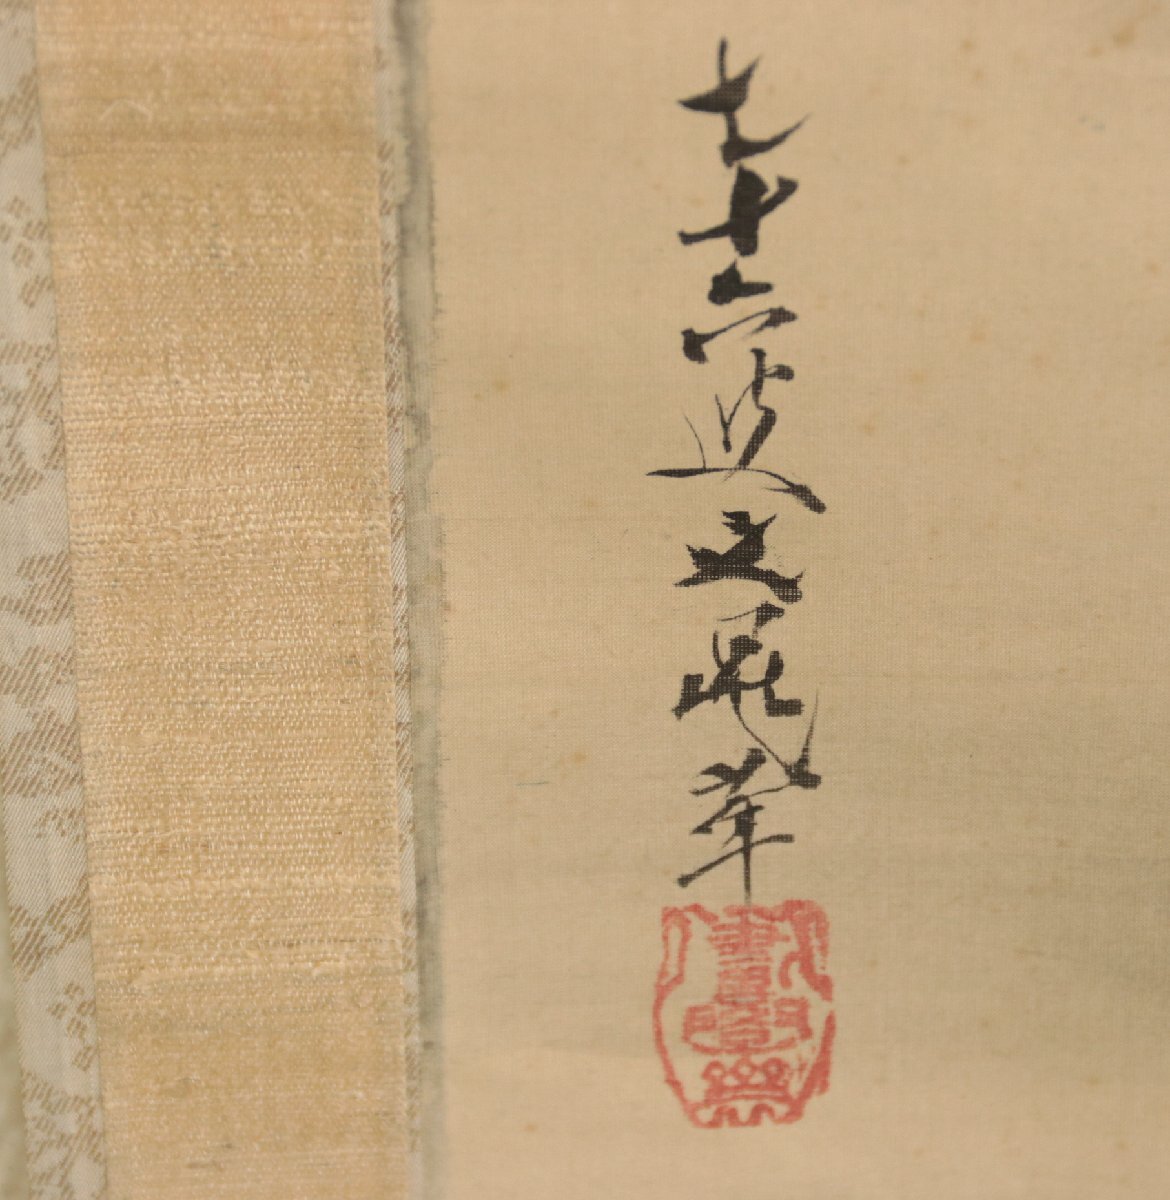 七十六叟文晁筆